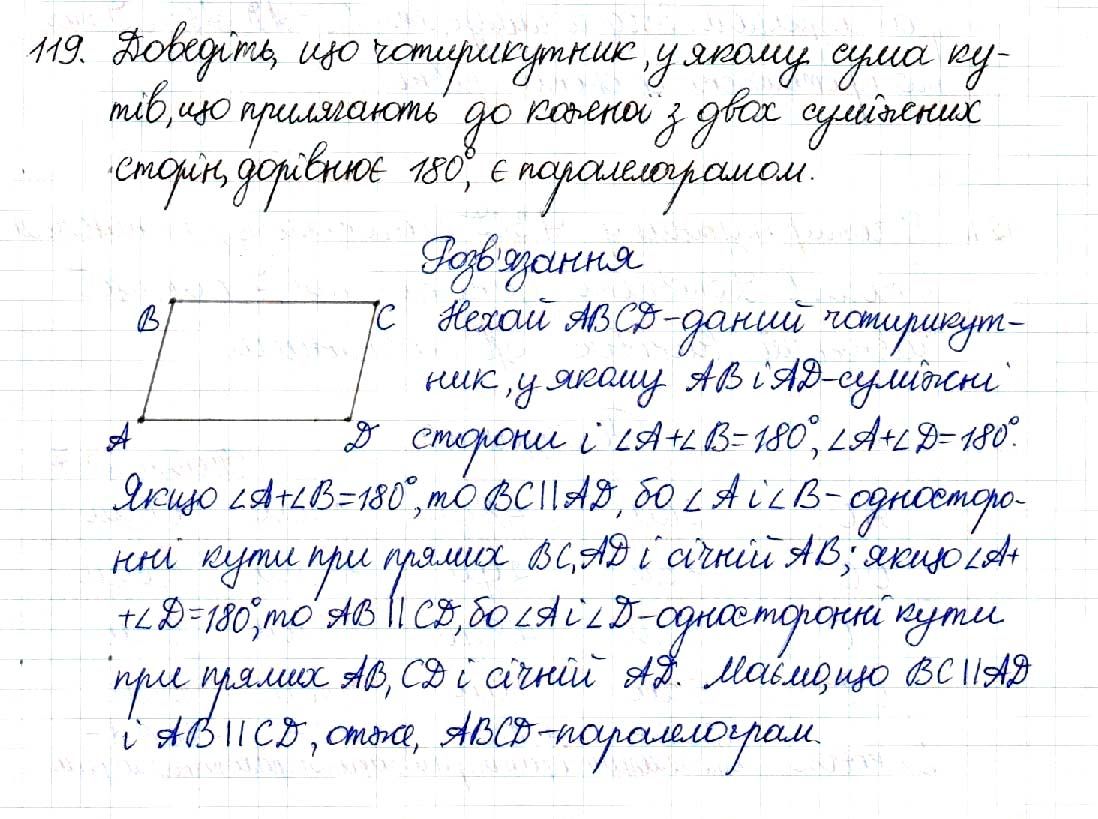 119. Доведіть, що чотирикутник, у якому сума ку-
тів, що прилягають до кожної з двох суміжних
сторін, дорівнює 180°, є паралелограмом.
Розв'язання
B C Нехай ABCD-даний чотирикут-
ник, у якому AB і AD-суміжні
A D сторони і ∠A+∠B=180°, ∠A+∠D=180°.
Якщо ∠A+∠B=180°, то BC||AD, бо ∠A і ∠B- односторо-
нні кути при прямих BC, AD і січній AB; якщо ∠A+
+∠D=180°, то AB||CD, бо ∠A і ∠D-односторонні кути
при прямих AB, CD і січній AD. Маємо, що BC||AD
і AB||CD, отже, ABCD-паралелограм.